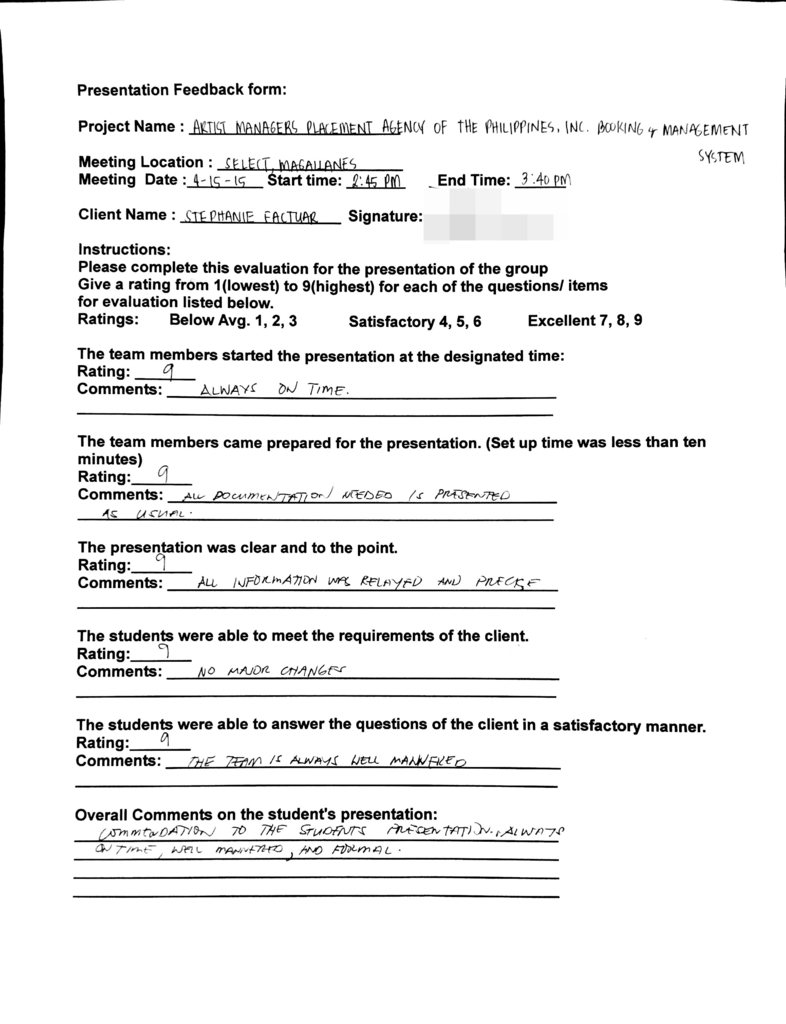 Presentation Feedback form:
Project Name : ARTIST MANAGERS PLACEMENT AGENCY OF THE PHILIPPINES, INC. BOOKING & MANAGEMENT
SYSTEM
Meeting Location : SELECT, MAGALLANES
Meeting Date : 4-15-15 Start time: 2:45 PM End Time: 3:40 PM
Client Name : STEPHANIE FACTUAR Signature:
Instructions:
Please complete this evaluation for the presentation of the group
Give a rating from 1(lowest) to 9(highest) for each of the questions/ items
for evaluation listed below.
Ratings: Below Avg. 1, 2, 3 Satisfactory 4, 5, 6 Excellent 7, 8, 9
The team members started the presentation at the designated time:
Rating: 9
Comments: ALWAYS ON TIME.
The team members came prepared for the presentation. (Set up time was less than ten
minutes)
Rating: 9
Comments: ALL DOCUMENTATION NEEDED IS PRESENTED
AS USUAL.
The presentation was clear and to the point.
Rating: 9
Comments: ALL INFORMATION WAS RELAYED AND PRECISE
The students were able to meet the requirements of the client.
Rating: 9
Comments: NO MAJOR CHANGES
The students were able to answer the questions of the client in a satisfactory manner.
Rating: 9
Comments: THE TEAM IS ALWAYS WELL MANNERED
Overall Comments on the student's presentation:
COMMENDATION TO THE STUDENTS PRESENTATION. ALWAYS
ON TIME, WELL MANNERED, AND FORMAL.